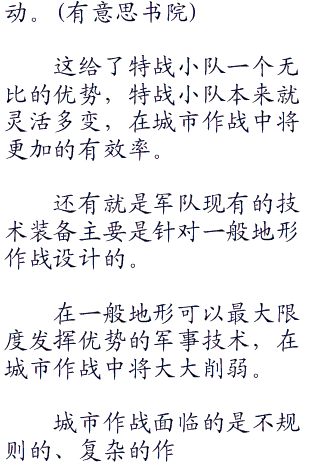 动。(有意思书院)
这给了特战小队一个无
比的优势，特战小队本来就
灵活多变，在城市作战中将
更加的有效率。
还有就是军队现有的技
术装备主要是针对一般地形
作战设计的。
在一般地形可以最大限
度发挥优势的军事技术，在
城市作战中将大大削弱。
城市作战面临的是不规
则的、复杂的作